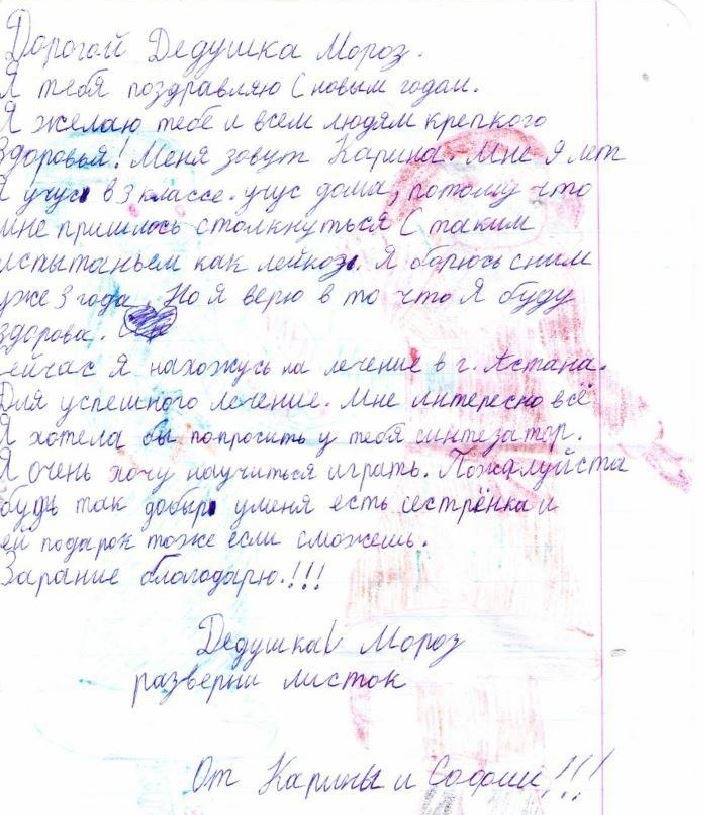 Дорогой Дедушка Мороз.
Я тебя поздравляю с новым годом.
Я желаю тебе и всем людям крепкого
здоровья! Меня зовут Карина. Мне 9 лет
Я учусь в 3 классе. учус дома, потому что
мне пришлось столкнуться с таким
испытаньем как лейкоз. Я борюсь сним
уже 3 года. Но я верю в то что Я буду
здорова.
ейчас Я нахожусь на лечение в г. Астана.
Для успешного лечение. Мне интересно всё
Я хотела бы попросить у тебя синтезатор.
Я очень хочу научиться играть. Пожалуйста
будь так добр уменя есть сестрёнка и
ей подарок тоже если сможешь.
Зарание благодарю.!!!
Дедушка Мороз
разверни листок
От Карины и Софии!!!